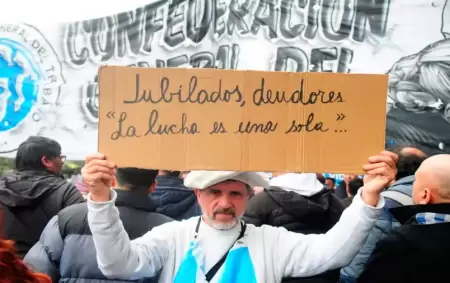 CONFEDERACIÓN
GENERAL DEL
Jubilados, deudores
"La lucha es una sola"...